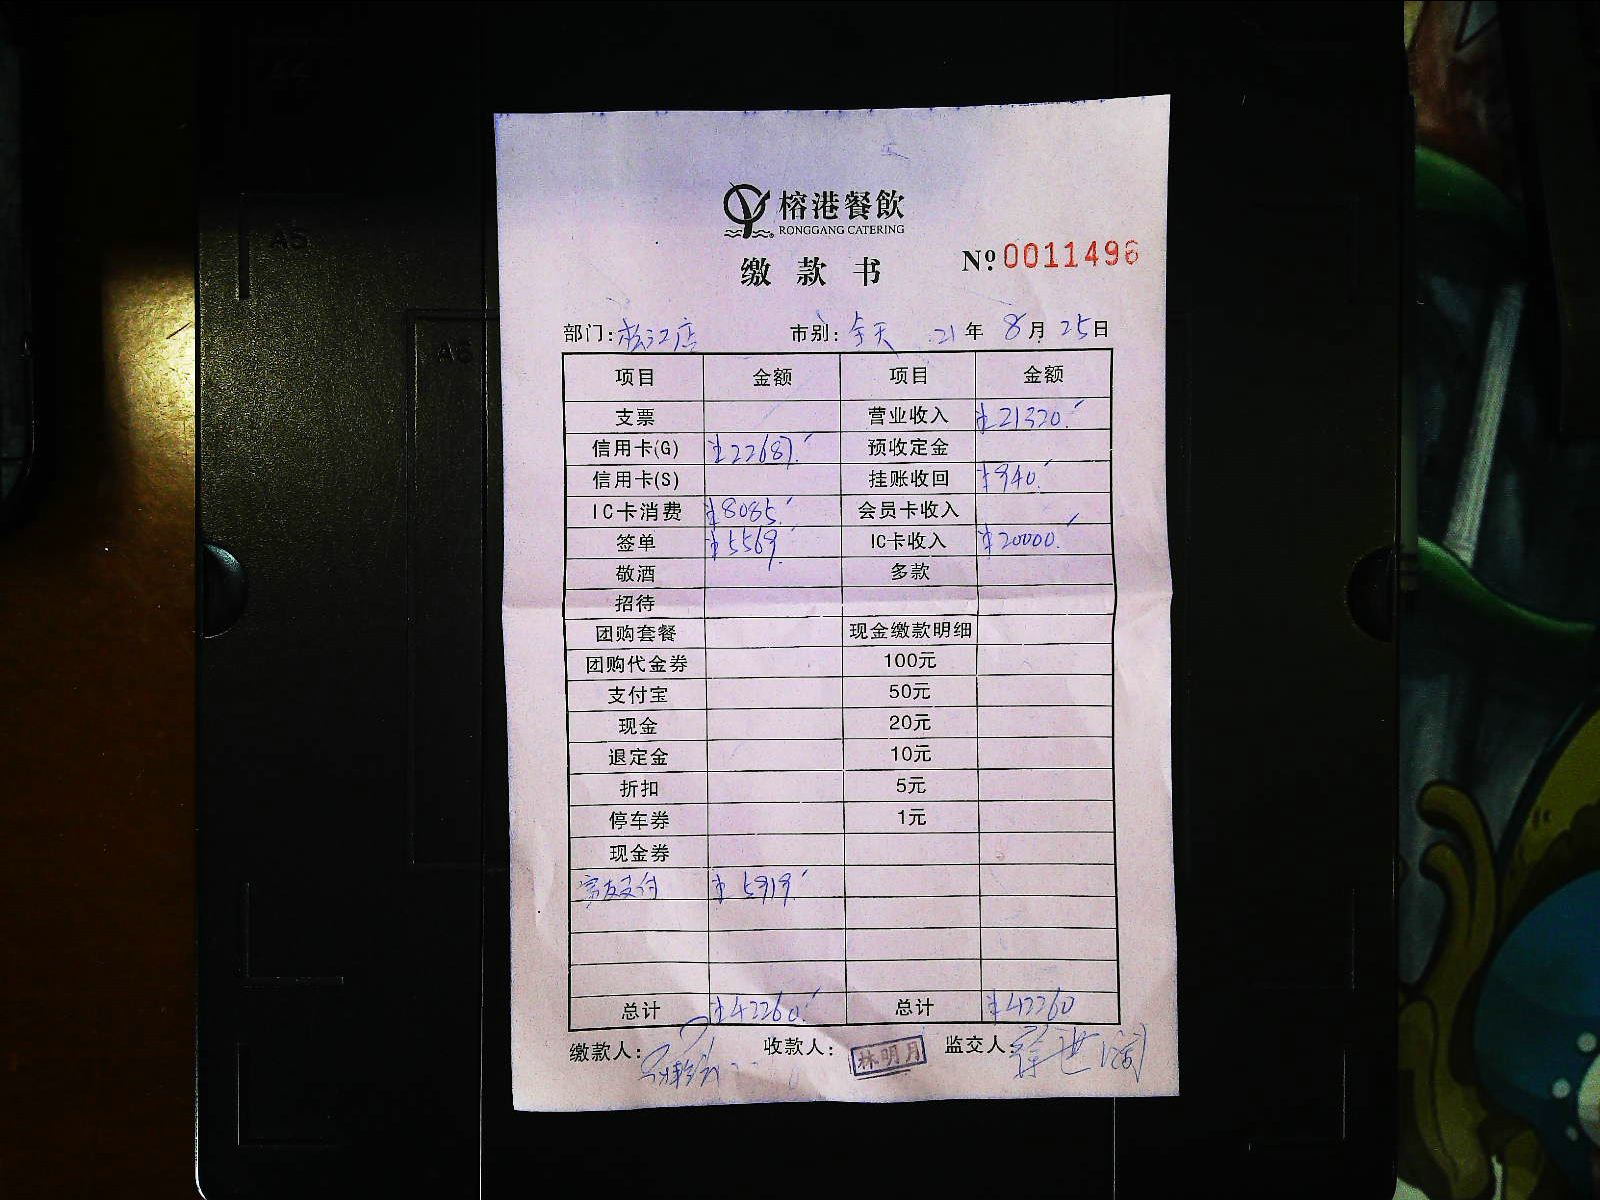 榕港餐飲
RONGGANG CATERING
缴款书
Nº 0011496
部门: 松江店 市别: 全天 21年 8月 25日
项目 金额 项目 金额
支票 营业收入 ¥21320.
信用卡(G) ¥22687. 预收定金
信用卡(S) 挂账收回 ¥940.
IC卡消费 ¥8085. 会员卡收入
签单 ¥5569 IC卡收入 ¥20000.
敬酒 多款
招待
团购套餐 现金缴款明细
团购代金券 100元
支付宝 50元
现金 20元
退定金 10元
折扣 5元
停车券 1元
现金券
支付 ¥5919.
总计 ¥42260. 总计 ¥42260
缴款人: 收款人: 林明月 监交人:
A5
A6